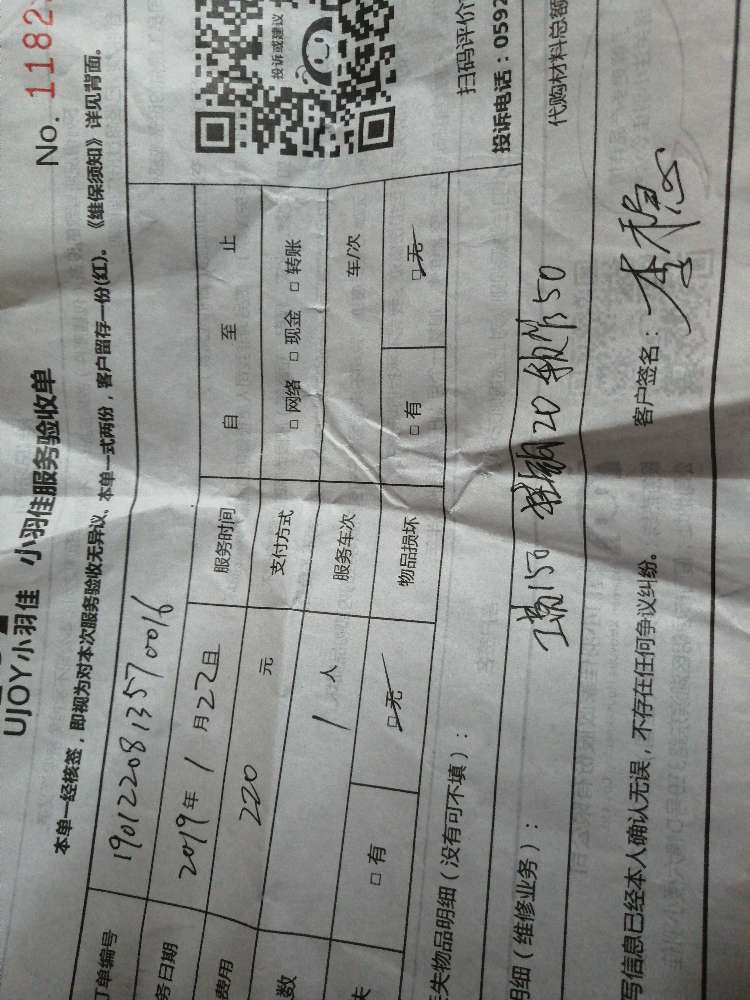 No. 1182
UJOY小羽佳 小羽佳服务验收单
本单一经核签，即视为对本次服务验收无异议、本单一式两份，客户留存一份(红)。《维保须知》详见背面。
订单编号 1901220813570016
务日期 2019年1月22日 服务时间 自 至 止
费用 220 元 支付方式 □网络 □现金 □转账
数 1 人 服务车次 车/次
失 □有 □无 物品损坏 □有 □无
投诉或建议
扫码评价
投诉电话：0592
失物品明细（没有可不填）：
明细（维修业务）：
工费150 20 50
代购材料总额
写信息已经本人确认无误，不存在任何争议纠纷。 客户签名：